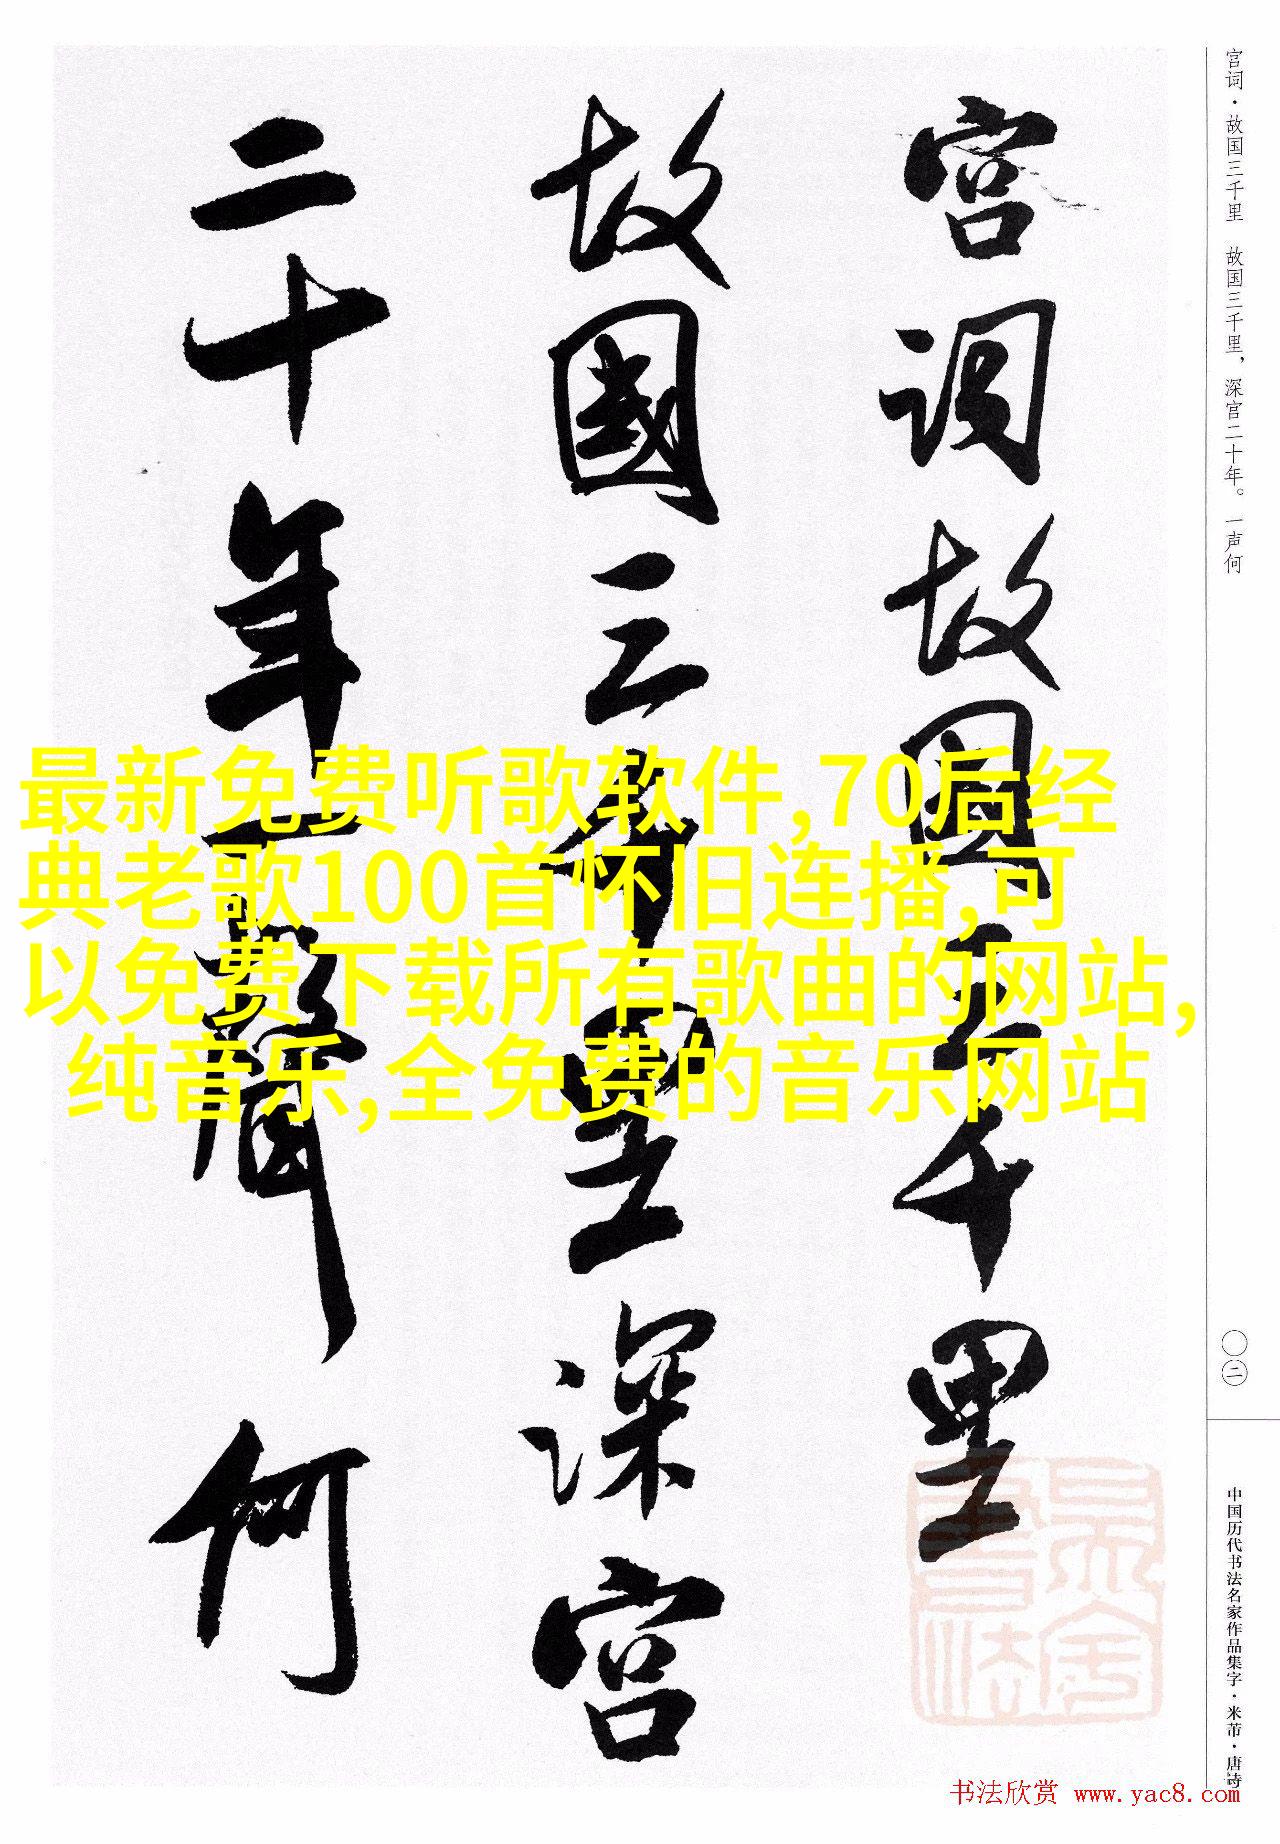 宫词·故国三千里 故国三千里，深宫二十年。一声何
宫词故国三千里
故國三千里深宫
二十年一聲何
最新免费听歌软件,70后经
典老歌100首怀旧连播,可
以免费下载所有歌曲的网站,
纯音乐,全免费的音乐网站
〇二
中国历代书法名家作品集字·米芾·唐诗
书法欣赏 www.yac8.com